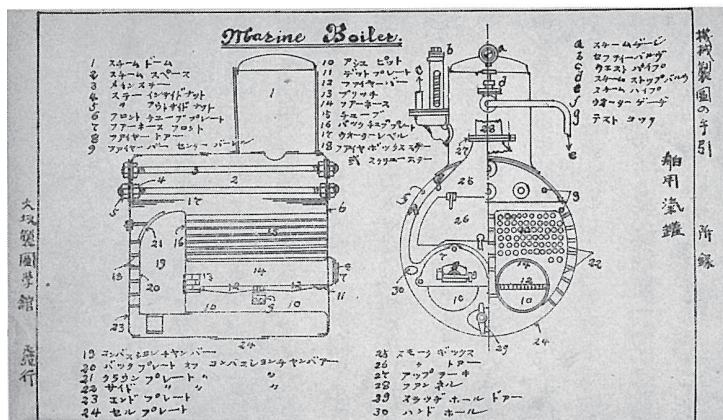 Marine Boiler.
1 スチームドーム
2 スチームスペース
3 メインステー
4 ステーインサイドナット
5 〃 アウトサイドナット
6 フロントチューブプレート
7 ファーネスフロント
8 ファイヤードアー
9 ファイヤーバーセンター
10 アシュピット
11 デットプレート
12 ファイヤーバー
13 ブリッヂ
14 ファーネース
15 チューブ
16 バックチューブプレート
17 ウオーターレベル
18 ファイヤボックスステー
スクリューステー
a スチームゲージ
b セフティーバルヴ
c ウエストパイプ
d スチームストップバルヴ
e スチームパイプ
f ウオーターゲーヂ
g テストコック
機械製図の手引 附録
舶用汽鑵
大阪製図学館 発行
19 コンバスションチャンバー
20 バックプレートオフコンバスションチャンバアー
21 クラウンプレート 〃 〃
22 サイド 〃 〃 〃
23 エンドプレート
24 セルプレート
25 スモークボックス
26 〃 ドアー
27 アップテーキ
28 ファンネル
29 スラッヂホールドアー
30 ハンドホール